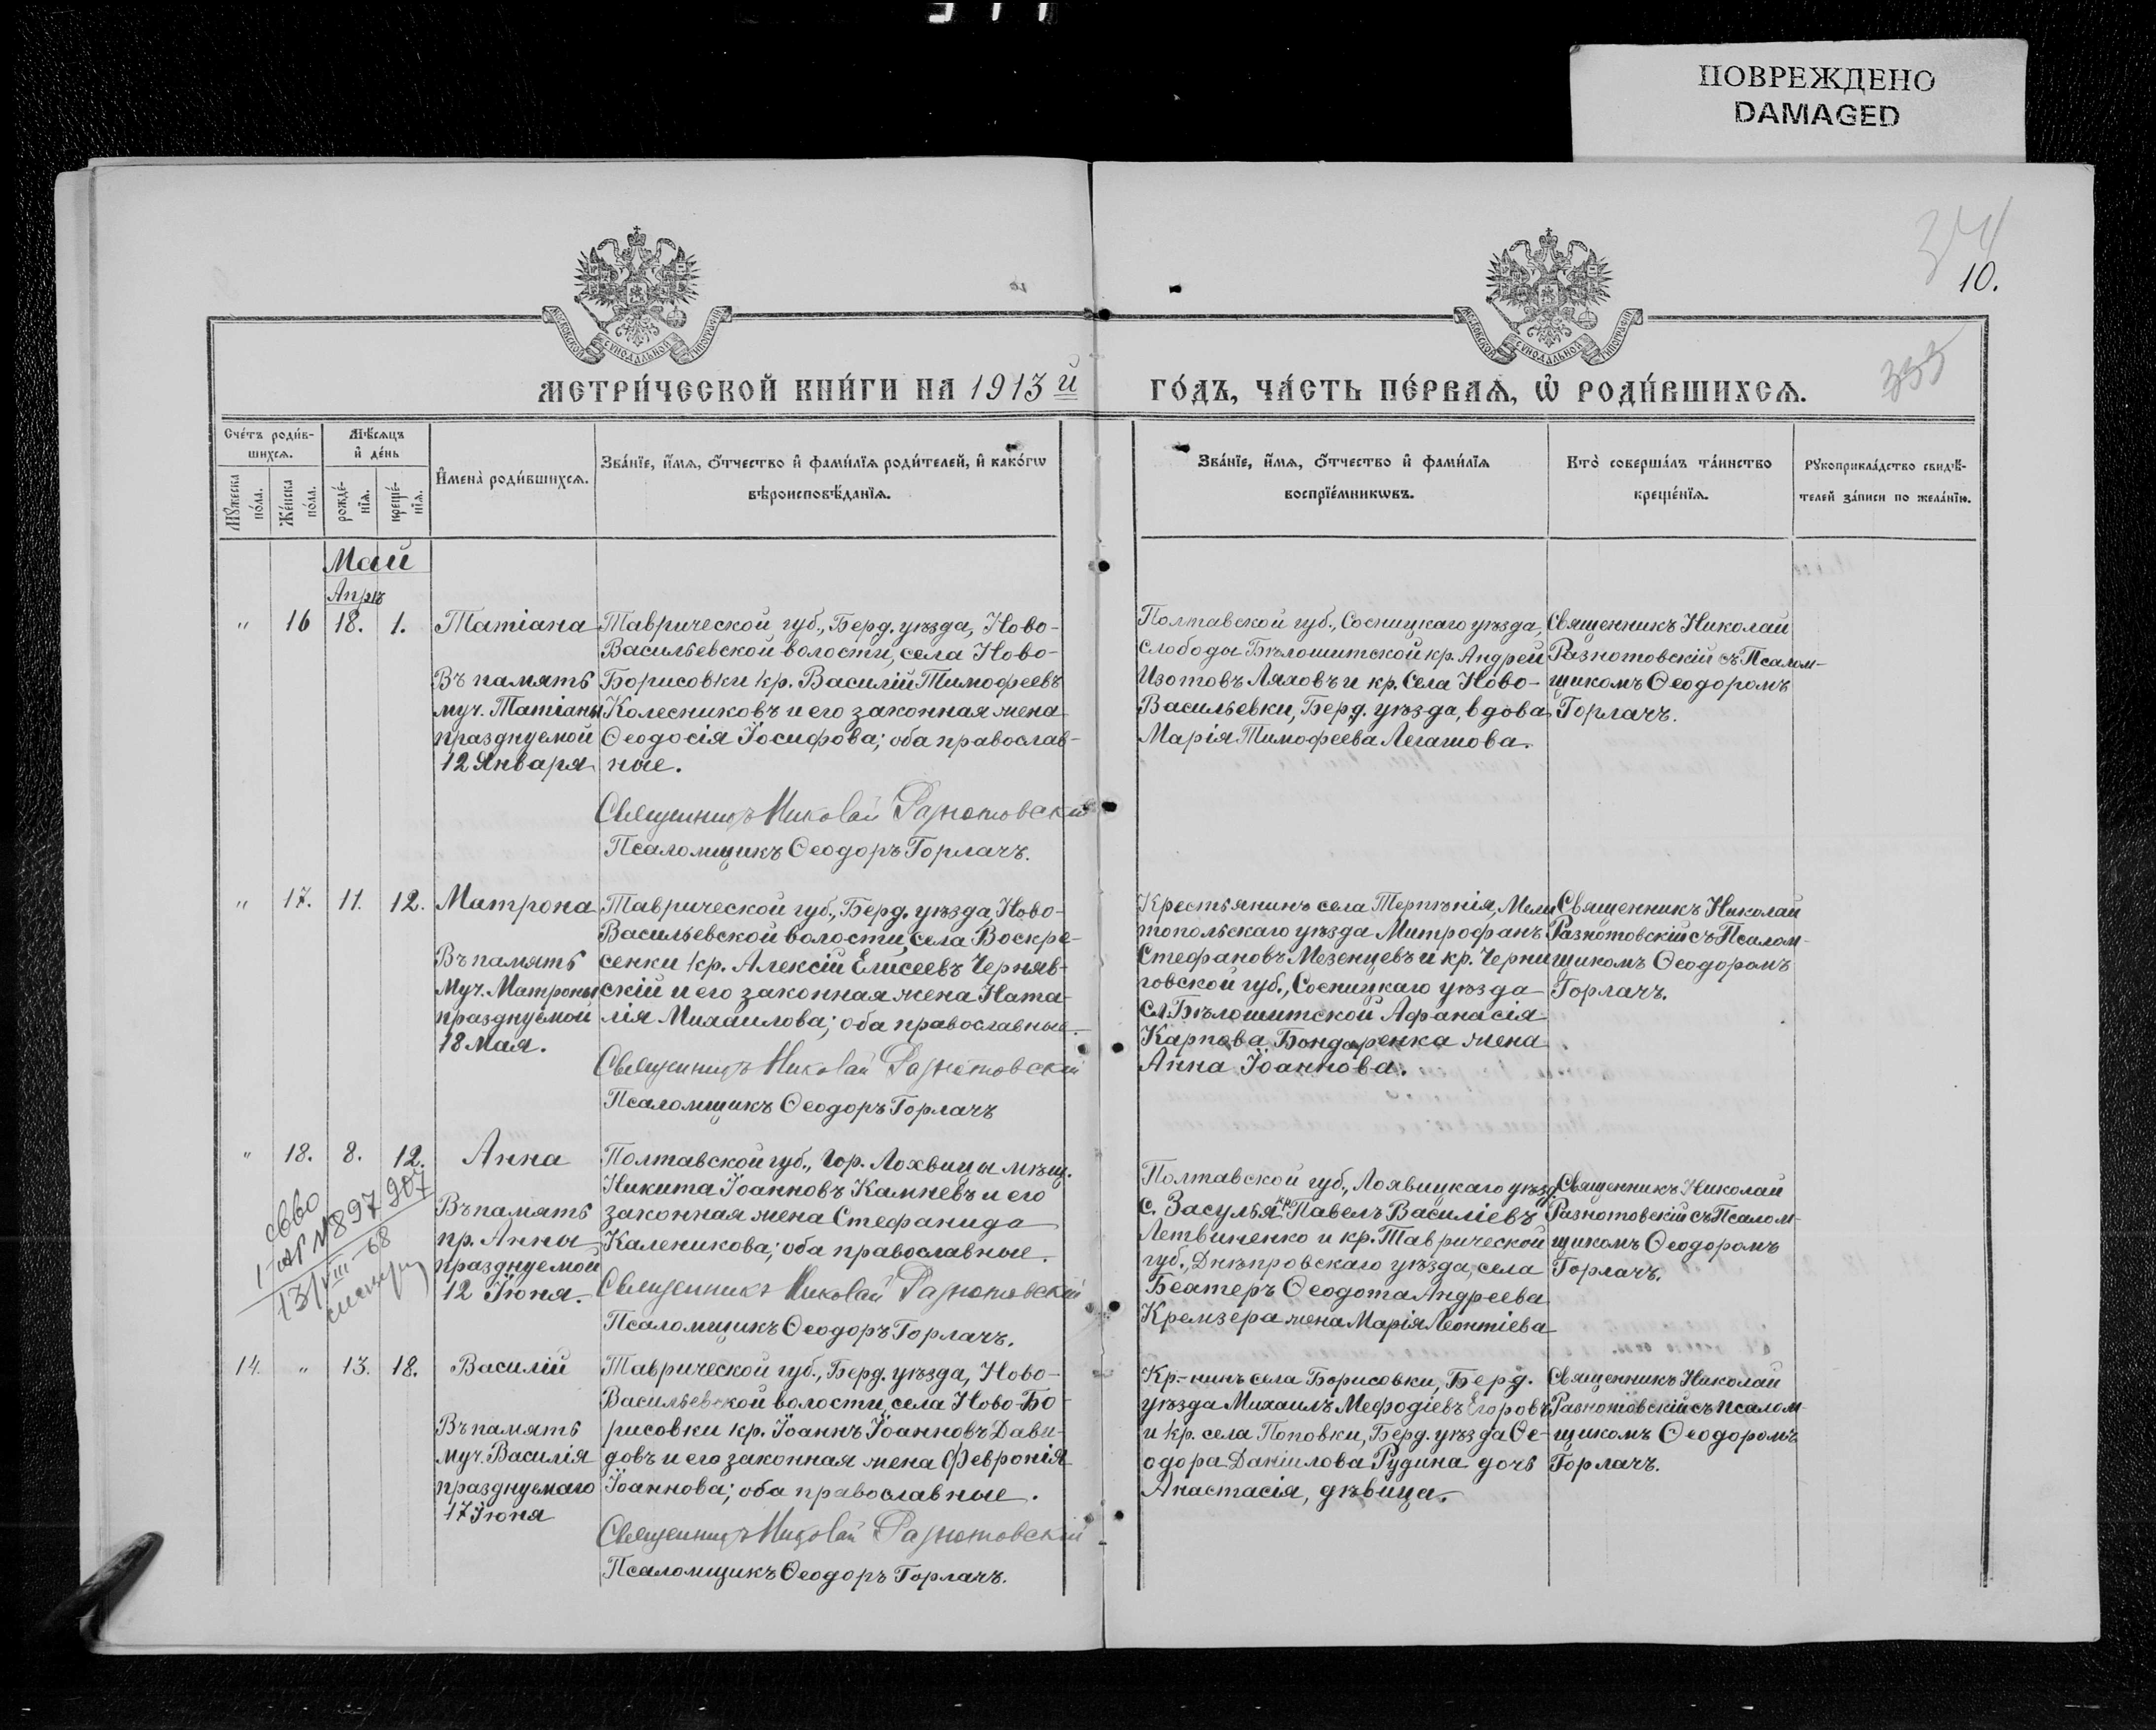 ПОВРЕЖДЕНО
DAMAGED
34
10.
МОСКОВСКОЙ СѴНОДАЛЬНОЙ ТИПОГРАФІИ
МОСКОВСКОЙ СѴНОДАЛЬНОЙ ТИПОГРАФІИ
МЕТРИ́ЧЕСКОЙ КНИ́ГИ НА 1913 й
ГО́ДЪ, ЧА́СТЬ ПЕ́РВАѦ, Ѿ РОДИ́ВШИХСѦ.
353
Сче́тъ роди́в-
шихсѧ.
Мѣ́сѧцъ
и҆ де́нь
Мꙋ́жеска
по́ла.
Же́нска
по́ла.
рожде́-
нїѧ.
креще́-
нїѧ.
И҆мена̀ роди́вшихсѧ.
Зва́нїе, и҆́мѧ, ѻ҆́тчество и҆ фами́лїѧ роди́телей, и҆ како́гѡ
вѣроисповѣ́данїѧ.
Зва́нїе, и҆́мѧ, ѻ҆́тчество и҆ фами́лїѧ
воспрїе́мникѡвъ.
Кто̀ соверша́лъ та́инство
креще́нїѧ.
Рꙋкоприкла́дство свидѣ́-
телей за́писи по жела́нїю.
Май
Апрѣ
" 16 18. 1.
Татіана
Въ память
муч. Татіаны
празднуемой
12 Января
Таврической губ., Берд. уѣзда, Ново-
Васильевской волости, села Ново-
Борисовки кр. Василій Тимофеевъ
Колесниковъ и его законная жена
Ѳеодосія Іосифова; оба православ-
ные.
Священникъ Николай Разнотовскій
Псаломщикъ Ѳеодоръ Горлачъ.
Полтавской губ., Сосницкаго уѣзда,
слободы Бѣлошитской кр. Андрей
Изотовъ Ляховъ и кр. села Ново-
Васильевки, Берд. уѣзда, вдова
Марія Тимофеева Легашова.
Священникъ Николай
Разнотовскій съ Псалом-
щикомъ Ѳеодоромъ
Горлачъ.
" 17. 11. 12.
Матрона
Въ память
муч. Матроны
празднуемой
18 Мая.
Таврической губ., Берд. уѣзда, Ново-
Васильевской волости, села Воскре-
сенки кр. Алексій Елисеевъ Черняв-
скій и его законная жена Ната-
лія Михаилова; оба православные.
Священникъ Николай Разнотовскій
Псаломщикъ Ѳеодоръ Горлачъ
Крестьянинъ села Терпѣнія, Мели
топольскаго уѣзда Митрофанъ
Стефановъ Мезенцевъ и кр. Черни
говской губ., Сосницкаго уѣзда
сл. Бѣлошитской Афанасія
Карпова Бондаренка жена
Анна Іоаннова.
Священникъ Николай
Разнотовскій съ Псалом-
щикомъ Ѳеодоромъ
Горлачъ.
" 18. 8. 12.
Анна
Въ память
пр. Анны
празднуемой
12 Іюня.
Полтавской губ., гор. Лохвицы мѣщ.
Никита Іоанновъ Камневъ и его
законная жена Стефанида
Каленикова; оба православные.
Священникъ Николай Разнотовскій
Псаломщикъ Ѳеодоръ Горлачъ.
Полтавской губ., Лохвицкаго уѣзд.
с. Засулья кр. Павелъ Василіевъ
Летвиненко и кр. Таврической
губ., Днѣпровскаго уѣзда, села
Беатеръ Ѳеодота Андреева
Кремзера жена Марія Леонтіева
Священникъ Николай
Разнотовскій съ Псалом-
щикомъ Ѳеодоромъ
Горлачъ.
13/VIII-68
14. " 13. 18.
Василій
Въ память
муч. Василія
празднуемаго
17 Іюня
Таврической губ., Берд. уѣзда, Ново-
Васильевской волости, села Ново-Бо-
рисовки кр. Іоаннъ Іоанновъ Дави-
довъ и его законная жена Февронія
Іоаннова; оба православные.
Священникъ Николай Разнотовскій
Псаломщикъ Ѳеодоръ Горлачъ.
Кр-нинъ села Борисовки, Берд.
уѣзда Михаилъ Мефодіевъ Егоровъ
и кр. села Поповки, Берд. уѣзда Ѳе-
одора Даніилова Рудина дочь
Анастасія, дѣвица.
Священникъ Николай
Разнотовскій съ псалом-
щикомъ Ѳеодоромъ
Горлачъ.